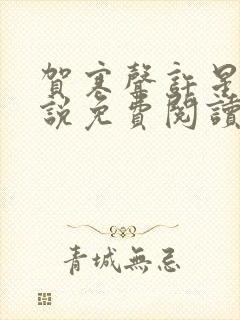 賀寒聲許星
說免費閱讀
青城無忌